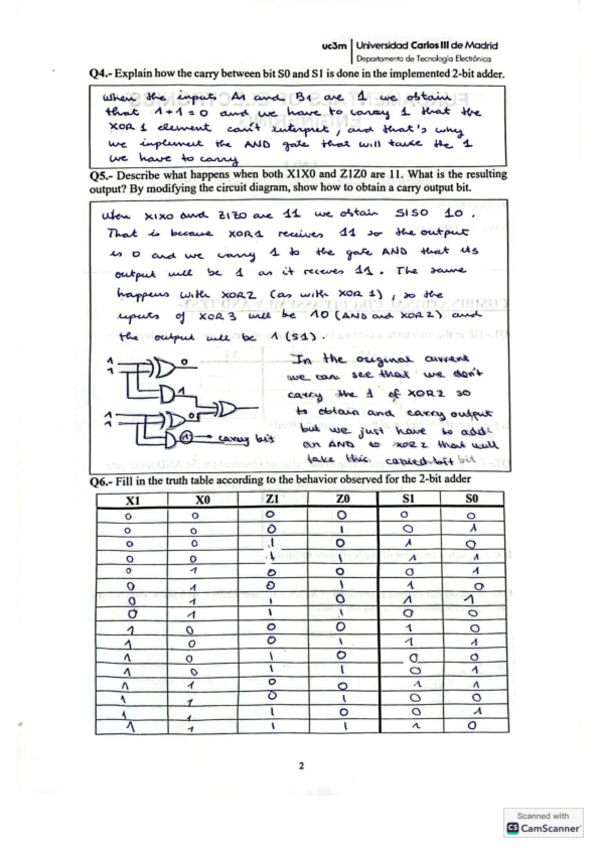 uc3m | Universidad Carlos III de Madrid
Departamento de Tecnología Electrónica
Q4.- Explain how the carry between bit S0 and S1 is done in the implemented 2-bit adder.
When the inputs A1 and B1 are 1 we obtain
that 1+1=0 and we have to carry 1 that the
XOR 1 element can't interpret, and that's why
we implement the AND gate that will take the 1
we have to carry
Q5.- Describe what happens when both X1X0 and Z1Z0 are 11. What is the resulting
output? By modifying the circuit diagram, show how to obtain a carry output bit.
When X1X0 and Z1Z0 are 11 we obtain S1S0 10.
That is because XOR1 receives 11 so the output
is 0 and we carry 1 to the gate AND that its
output will be 1 as it receives 11. The same
happens with XOR2 (as with XOR 1), so the
inputs of XOR3 will be 10 (AND and XOR2) and
the output will be 1 (S1).
1
1
0
1
1
1
0
1 → carry bit
In the original current
we can see that we don't
carry the 1 of XOR2 so
to obtain and carry output
but we just have to add
an AND to XOR2 that will
take this carried bit
Q6.- Fill in the truth table according to the behavior observed for the 2-bit adder
X1 X0 Z1 Z0 S1 S0
0 0 0 0 0 0
0 0 0 1 0 1
0 0 1 0 1 0
0 0 1 1 1 1
0 1 0 0 0 1
0 1 0 1 1 0
0 1 1 0 1 1
0 1 1 1 0 0
1 0 0 0 1 0
1 0 0 1 1 1
1 0 1 0 0 0
1 0 1 1 0 1
1 1 0 0 1 1
1 1 0 1 0 0
1 1 1 0 0 1
1 1 1 1 1 0
2
Scanned with
CS CamScanner